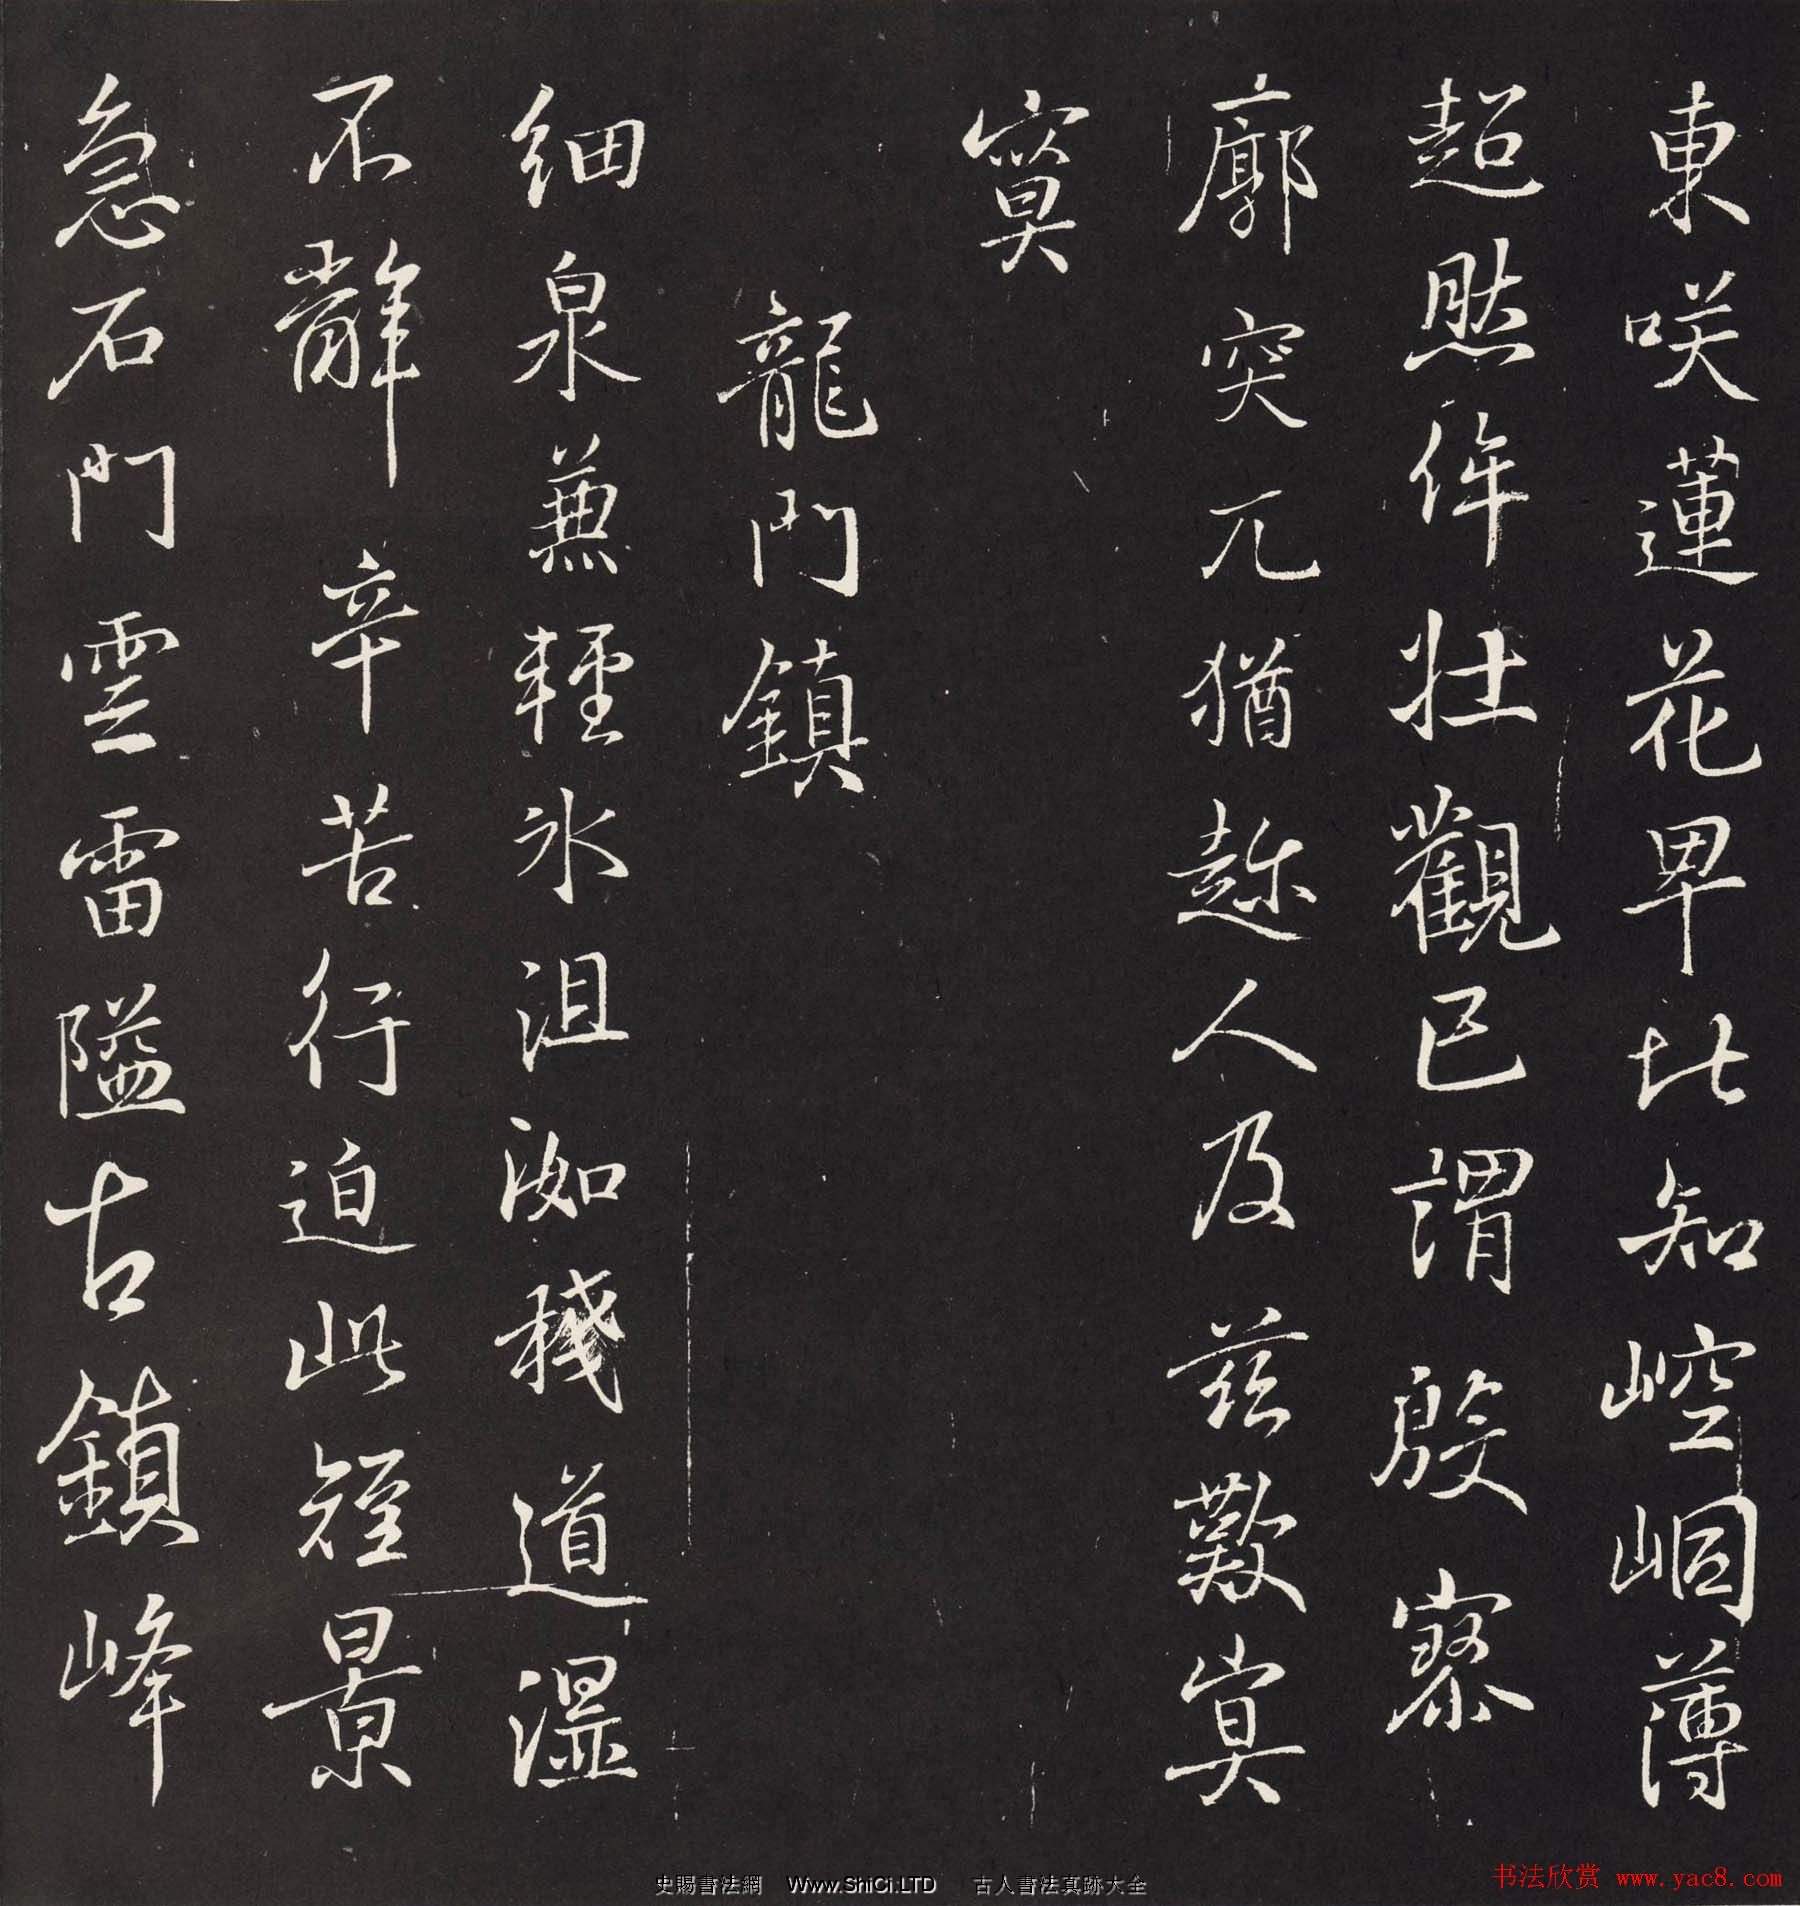 東咲蓮花卑北知崆峒薄
超然侔壯觀已謂殷寥
廓突兀猶趂人及兹歎冥
寞
龍門鎮
細泉兼輕冰沮洳棧道濕
不辭辛苦行迫此短景
急石門雲雷隘古鎮峰
史賜書法網 Www.ShiCi.LTD 古人書法真跡大全
书法欣赏 www.yac8.com